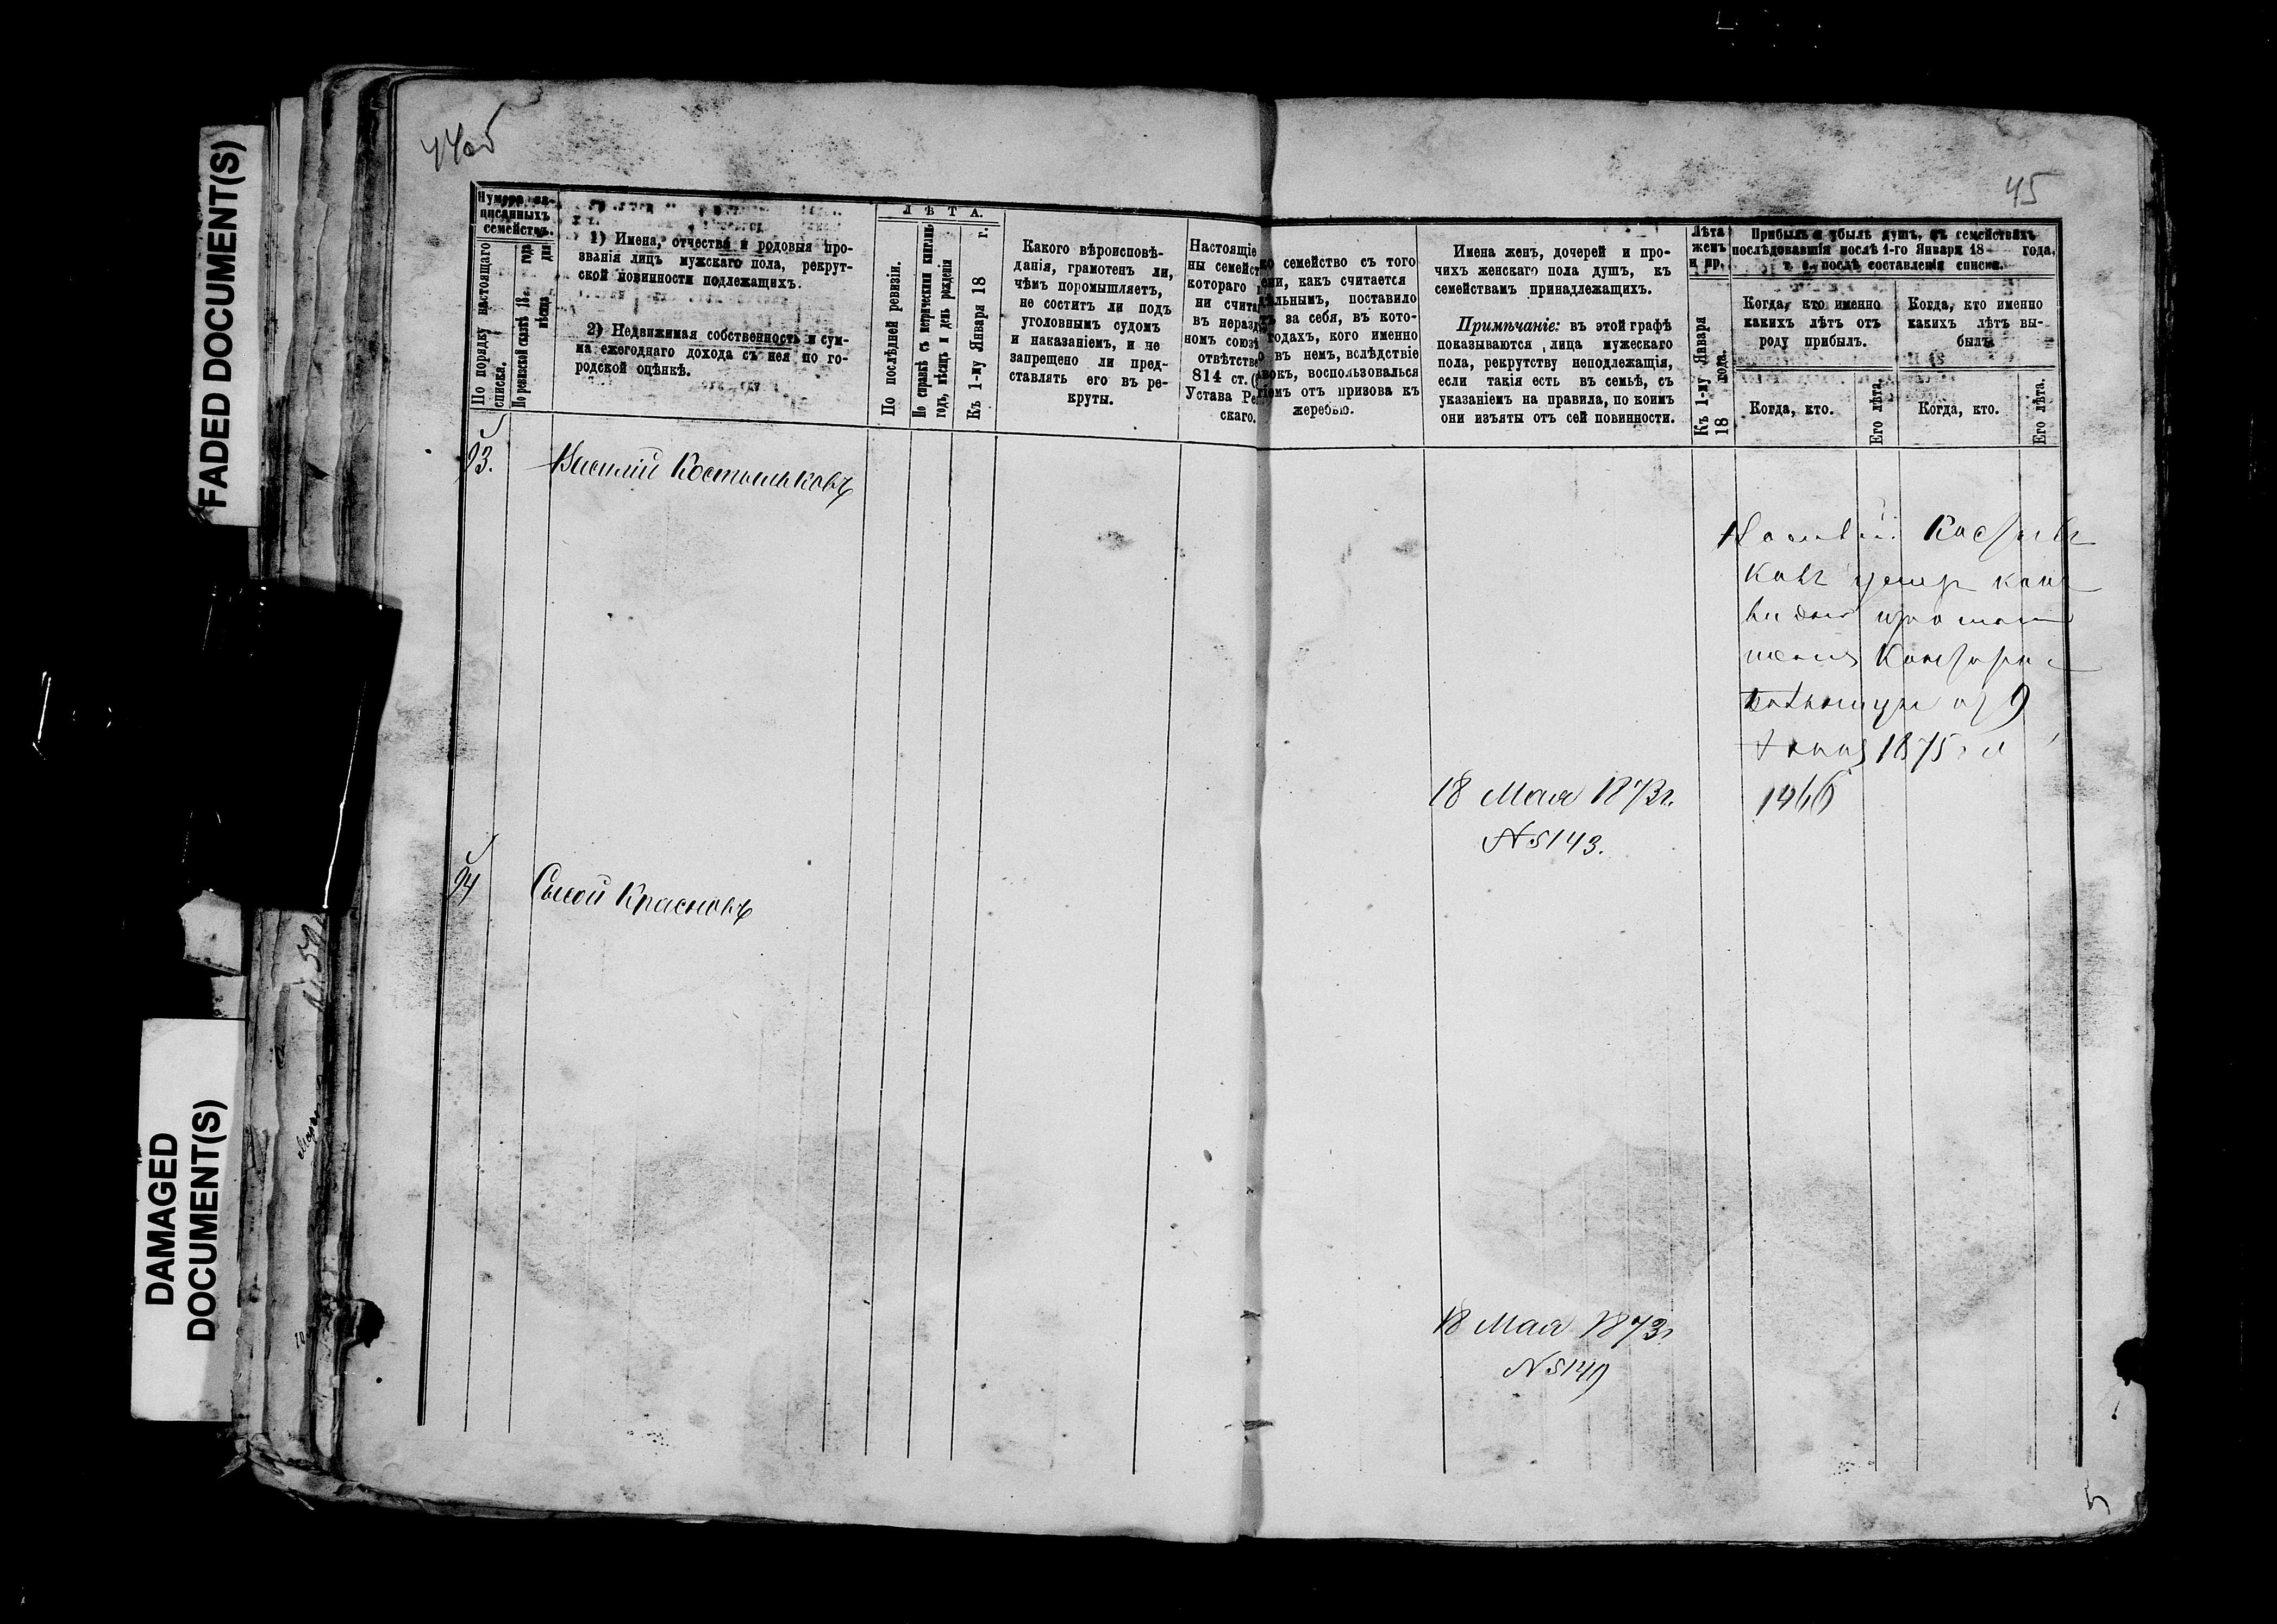 FADED DOCUMENT(S)
DAMAGED
DOCUMENT(S)
44об
45
Нумера за-
писанныхъ
семействъ.
По порядку настоящаго
списка.
По ревизской сказкѣ 18 г. года
мѣсяца дня
1) Имена, отчества и родовыя про-
званія лицъ мужскаго пола, рекрут-
ской повинности подлежащихъ.
2) Недвижимая собственность и сум-
ма ежегоднаго дохода съ нея по го-
родской оцѣнкѣ.
ЛѢТА.
По послѣдней ревизіи.
По справкѣ съ метрическими книгами
годъ, мѣсяцъ и день рожденія
Къ 1-му Января 18 г.
Какого вѣроисповѣ-
данія, грамотенъ ли,
чѣмъ поромышляетъ,
не соститъ ли подъ
уголовнымъ судомъ
и наказаніемъ, и не
запрещено ли пред-
ставлять его въ ре-
круты.
Настоящіе
ны семейст
котораго
ни счита
въ нераз
номъ союзѣ
отвѣтстве
814 ст.
Устава Ре
скаго.
семейство съ того
ени, какъ считается
дѣльнымъ, поставило
за себя, въ кото-
годахъ, кого именно
въ немъ, вслѣдствіе
вокъ, воспользовалься
іемъ отъ призова къ
жеребью.
Имена женъ, дочерей и про-
чихъ женскаго пола душъ, къ
семействамъ принадлежащихъ.
Примѣчаніе: въ этой графѣ
показываются лица мужескаго
пола, рекрутству неподлежащія,
если такія есть въ семьѣ, съ
указаніемъ на правила, по коимъ
они изъяты отъ сей повинности.
Лѣта
женъ
и пр.
Къ 1-му Января
18 года.
Прибыль и убыль душъ, въ семействахъ
послѣдовавшія послѣ 1-го Января 18 года,
т. е. послѣ составленія списка.
Когда, кто именно
какихъ лѣтъ отъ
роду прибылъ.
Когда, кто именно
какихъ лѣтъ вы-
былъ.
Когда, кто.
Его лѣта.
Когда, кто.
Его лѣта.
93.
Василій Костыльковъ
Василій Костыль
ковъ умеръ какъ
видно
1875 г.
1466
18 Мая 1873 г.
№ 5143.
94
Сысой Красновъ
18 Мая 1873 г.
№ 5149
5